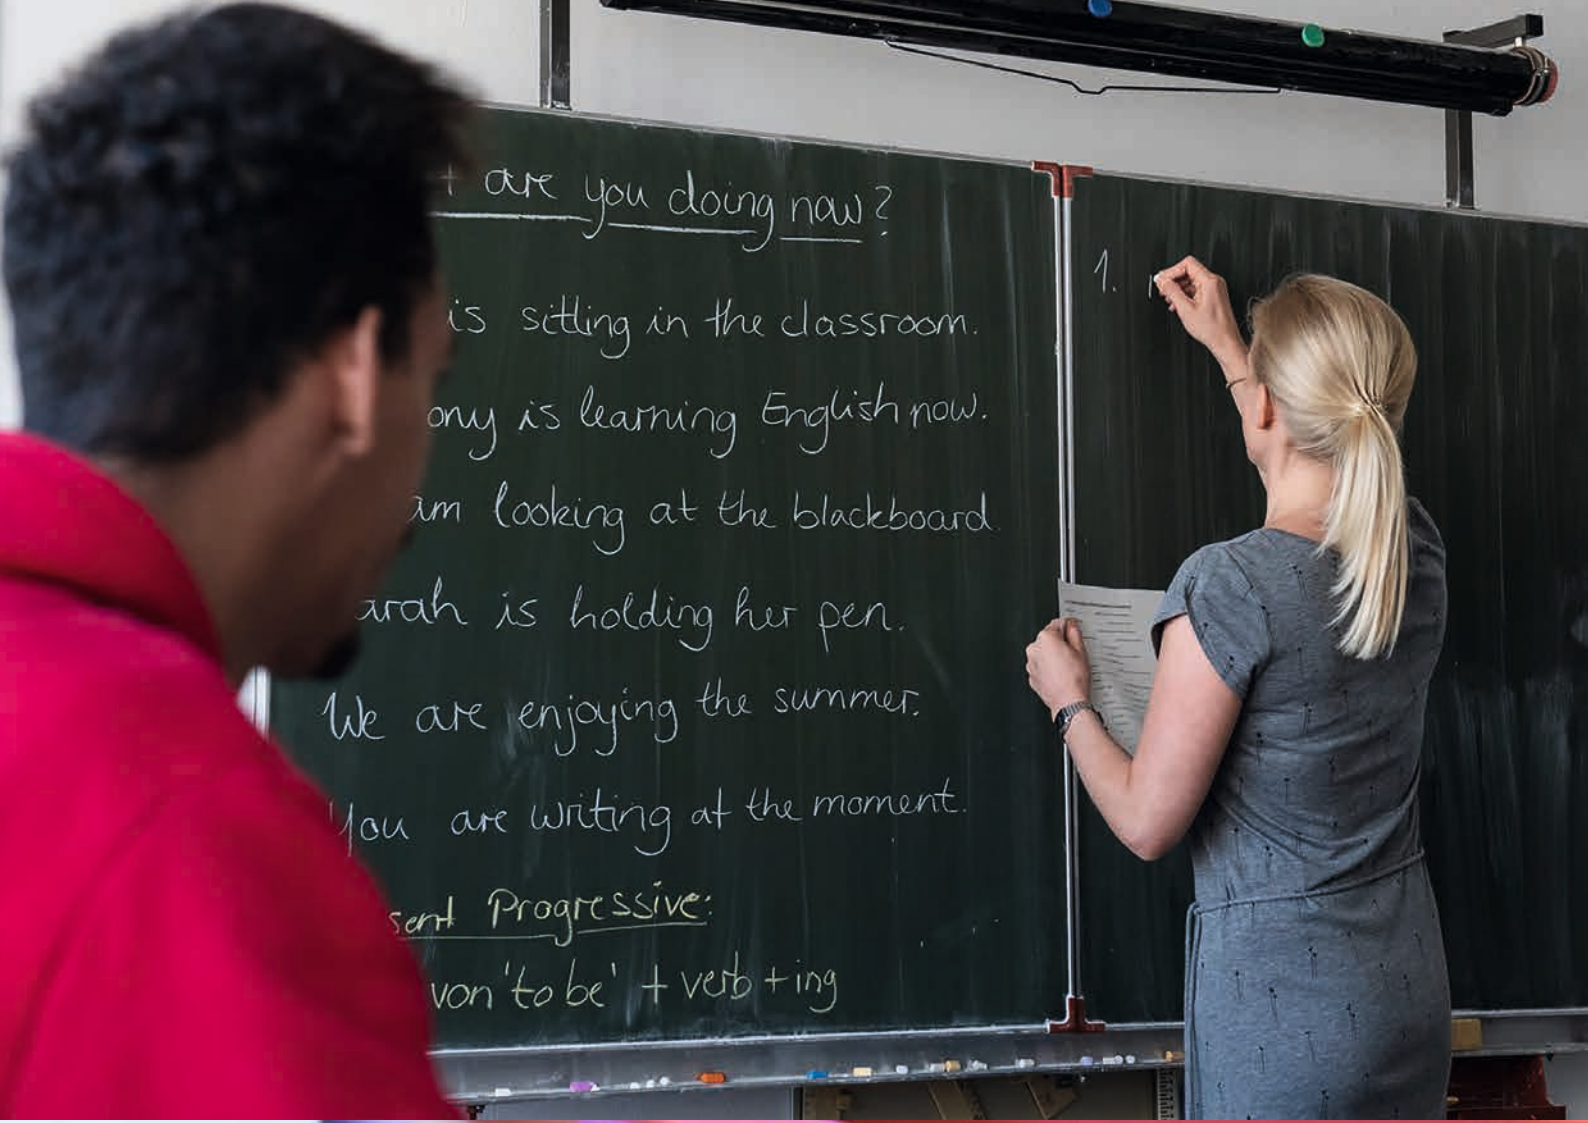 are you doing now?
is sitting in the classroom.
ony is learning English now.
am looking at the blackboard
arah is holding her pen.
We are enjoying the summer.
You are writing at the moment.
sent Progressive:
von 'to be' + verb + ing
1.